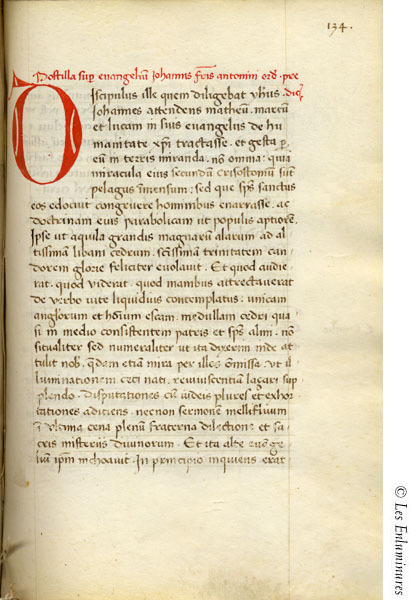 134.
Postilla sup evangeliū Johannis fr̄is antonini ord. pre
dic̄.
Discipulus ille quem diligebat yhus.
Johannes attendens matheū. marcū
et lucam in suis evangeliis de hu
manitate xp̄i tractasse. et gesta p
eū in terris miranda. nō omnia: quia
miracula eius secundū crisostomū sūt
pelagus īmensum: sed que sp̄s sanctus
eos edocuit congruere hominibus enarrasse. ac
doctrinam eius parabolicam ut populis aptiorē.
Ipse ut aquila grandis magnarū alarum ad al
tissimā libani cedrum. sc̄issimā trinitatem can
dorem glorie feliciter evolavit. Et quod audie
rat. quod viderat. quod manibus attrectaverat
de verbo vite liquidius contemplatus: unicam
anglorum et hoīum escam. medullam cedri qua
si in medio consistentem patris et sp̄s alm. nō
situaliter sed numeraliter ut ita dixerim inde at
tulit nob. qdam etiā mira per illos omissa. ut il
luminationem ceci nati. reviviscentiā laçari sup
plendo. Disputationes cū iudeis plures et exhor
tationes adiciens. necnon sermonē mellifluum
in ultima cena plenū fraterna dilectione et sa
cris misteriis divinorum. Et ita alte euange
lium ip̄m inchoavit. In principio inquiens erat
© Les Enluminures